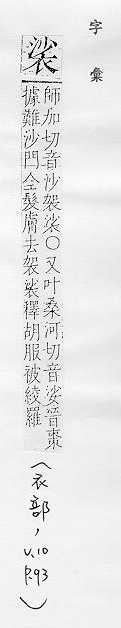 字彙
裟
師加切音沙袈裟○又叶桑河切音娑晉棗
據難沙門全髮膚去袈裟釋胡服被綾羅
(衣部,
V.10
P.93)